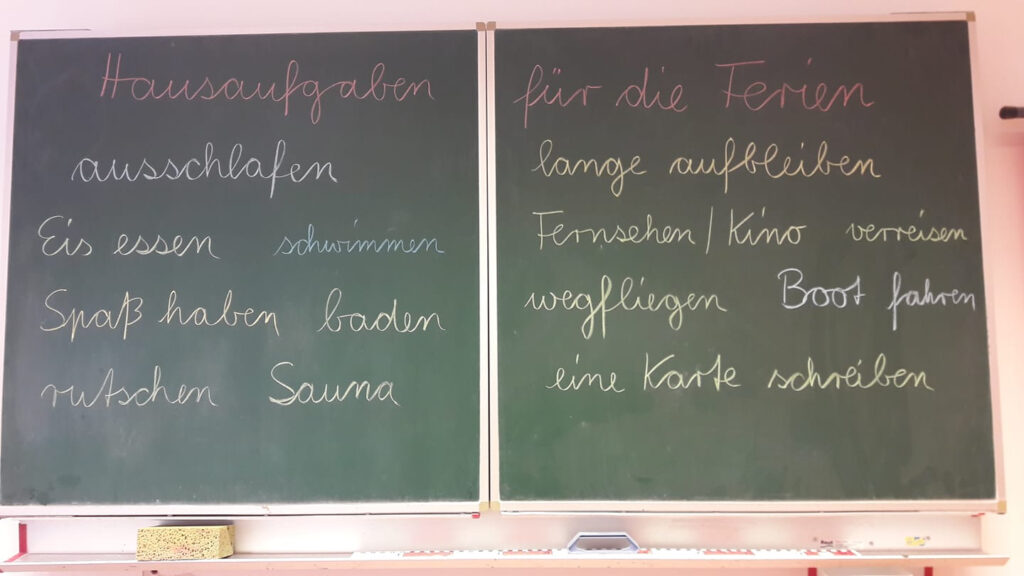 Hausaufgaben für die Ferien
ausschlafen lange aufbleiben
Eis essen schwimmen Fernsehen / Kino verreisen
Spaß haben baden wegfliegen Boot fahren
rutschen Sauna eine Karte schreiben